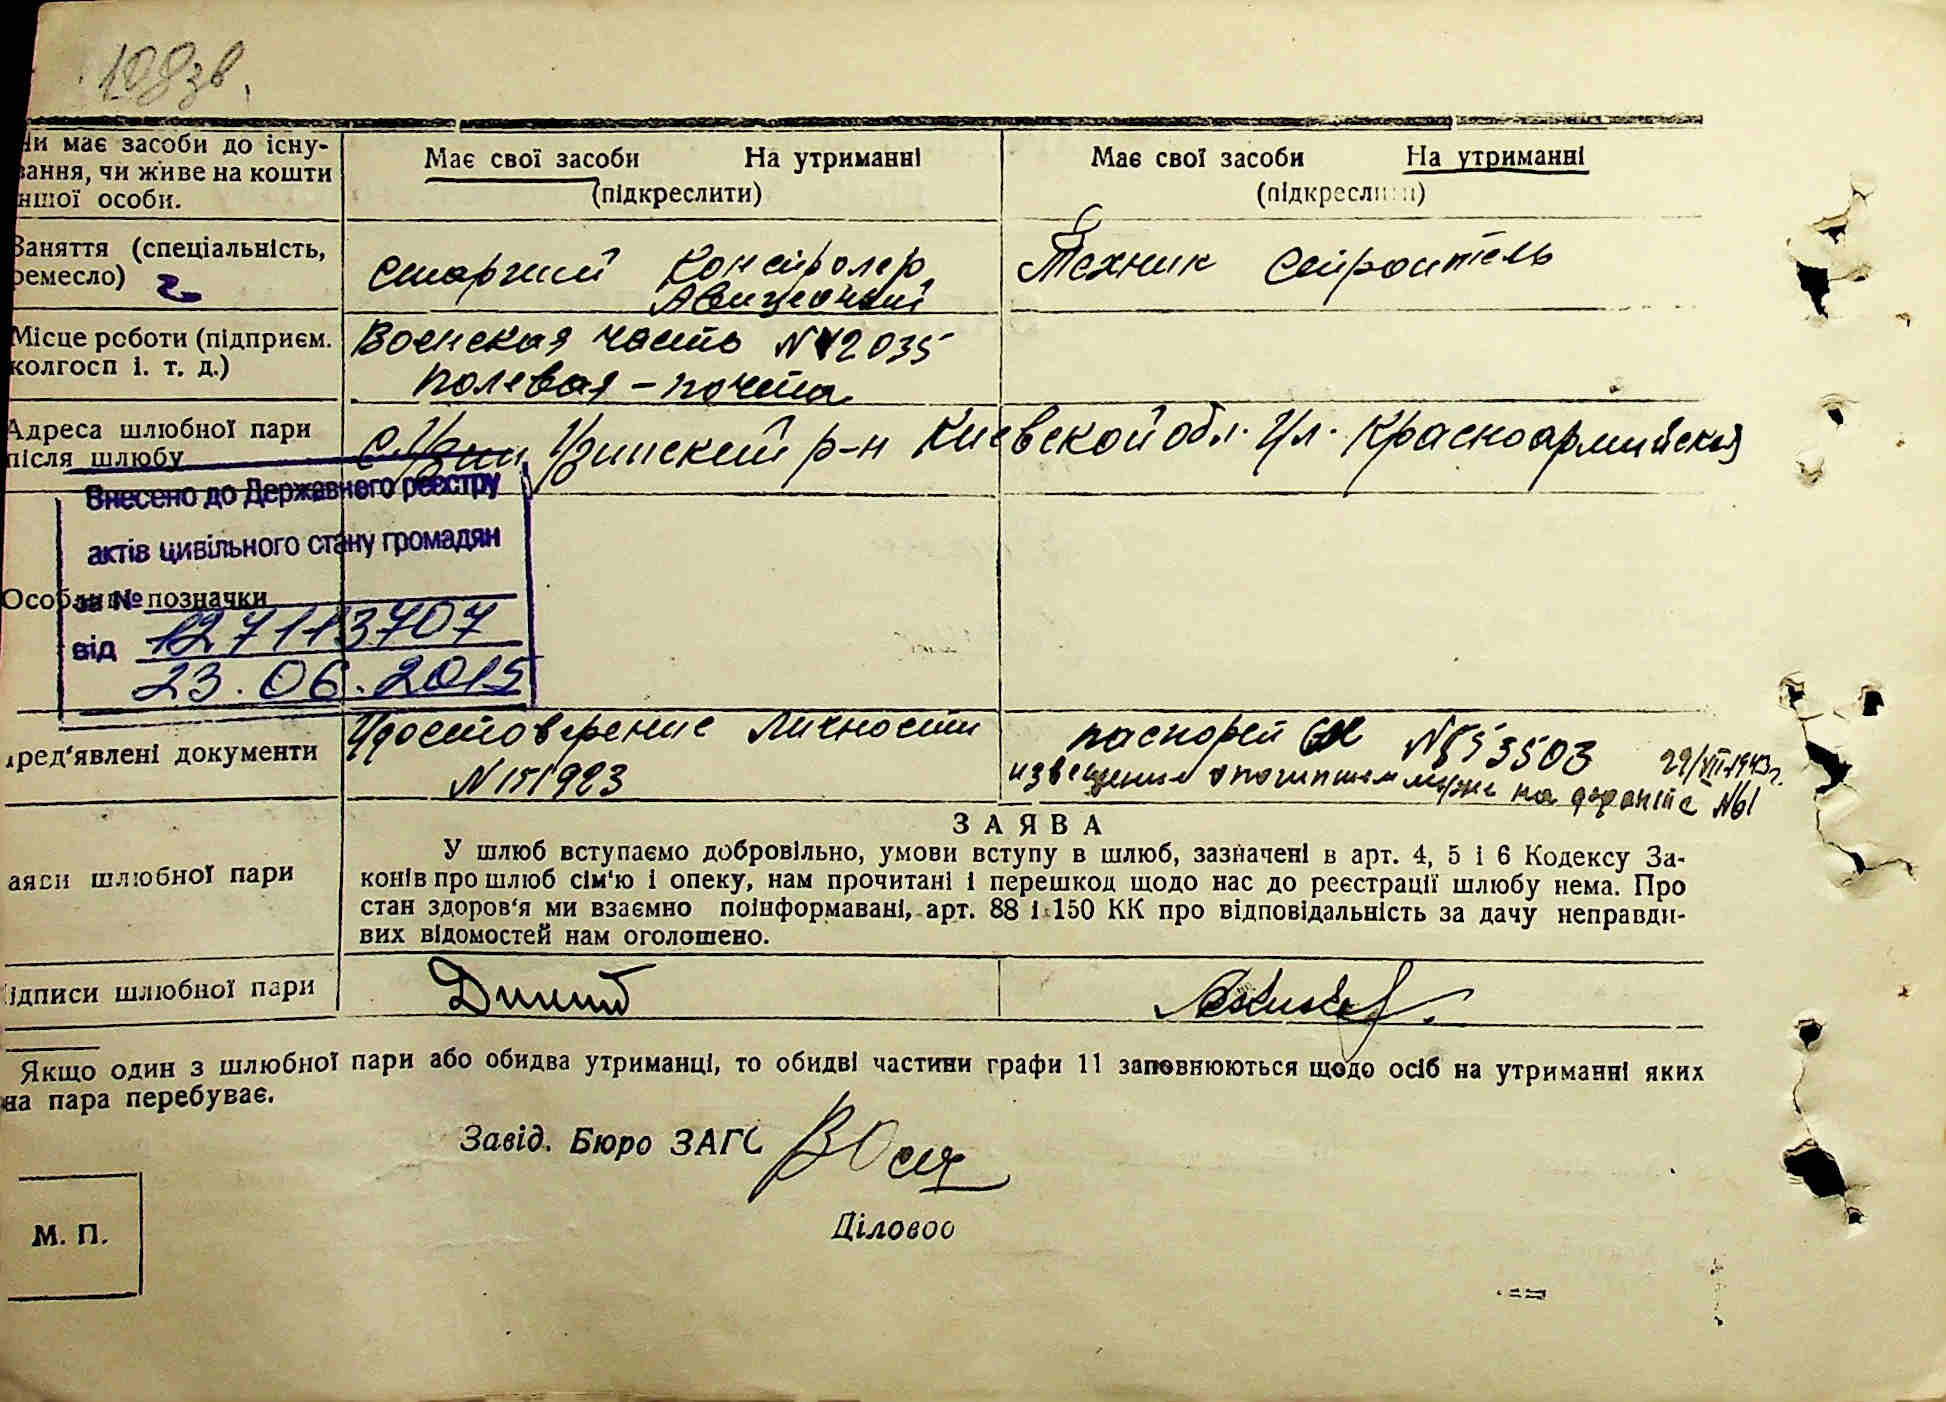 108зв.
Чи має засоби до існу-
вання, чи живе на кошти
іншої особи.
Має свої засоби На утриманні
(підкреслити)
Має свої засоби На утриманні
(підкреслити)
Заняття (спеціальність,
ремесло)
старший Контролер
Авиационный
Техник Строитель
Місце роботи (підприєм.
колгосп і. т. д.)
Воинская часть N 42035
полевая - почта
Адреса шлюбної пари
після шлюбу
с. Узин Узинский р-н Киевской обл. Ул. Красноармийская
Внесено до Державного реєстру
актів цивільного стану громадян
за № 127113707
від 23.06.2015
Особливі позначки
Пред'явлені документи
Удостоверение Личности
N 151923
паспорт N 553503
извещения о погипшем муже на фронте N61 29/VII-1943г.
Заяви шлюбної пари
ЗАЯВА
У шлюб вступаємо добровільно, умови вступу в шлюб, зазначені в арт. 4, 5 і 6 Кодексу За-
конів про шлюб сім'ю і опеку, нам прочитані і перешкод щодо нас до реєстрації шлюбу нема. Про
стан здоров'я ми взаємно поінформавані, арт. 88 і 150 КК про відповідальність за дачу неправди-
вих відомостей нам оголошено.
Підписи шлюбної пари
Якщо один з шлюбної пари або обидва утриманці, то обидві частини графи 11 заповнюються щодо осіб на утриманні яких
на пара перебуває.
Завід. Бюро ЗАГС
Діловоо
М. П.